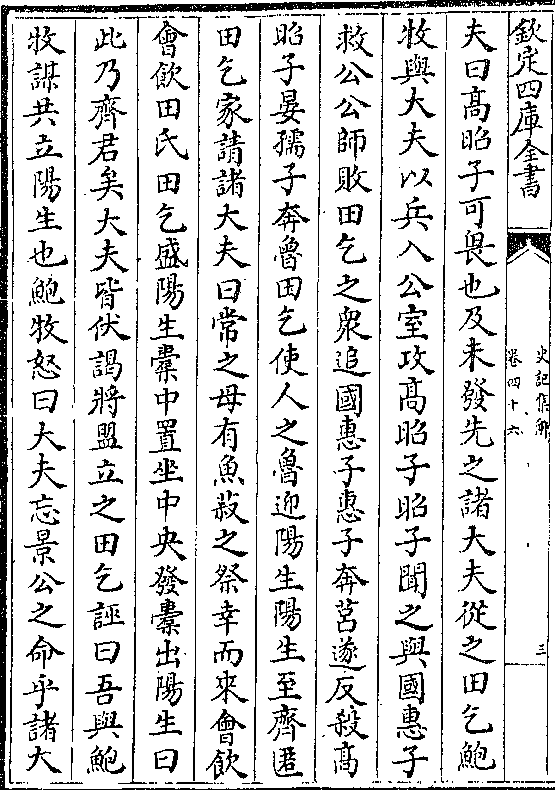 欽定四庫全書
史記集解
卷四十六
三
夫曰髙昭子可畏也及未發先之諸大夫從之田乞鮑
牧與大夫以兵入公室攻髙昭子昭子聞之與國惠子
救公公師敗田乞之衆追國惠子惠子奔莒遂反殺髙
昭子晏孺子奔魯田乞使人之魯迎陽生陽生至齊匿
田乞家請諸大夫曰常之母有魚菽之祭幸而來會飲
會飲田氏田乞盛陽生橐中置坐中央發橐出陽生曰
此乃齊君矣大夫皆伏謁將盟立之田乞誣曰吾與鮑
牧謀共立陽生也鮑牧怒曰大夫忘景公之命乎諸大